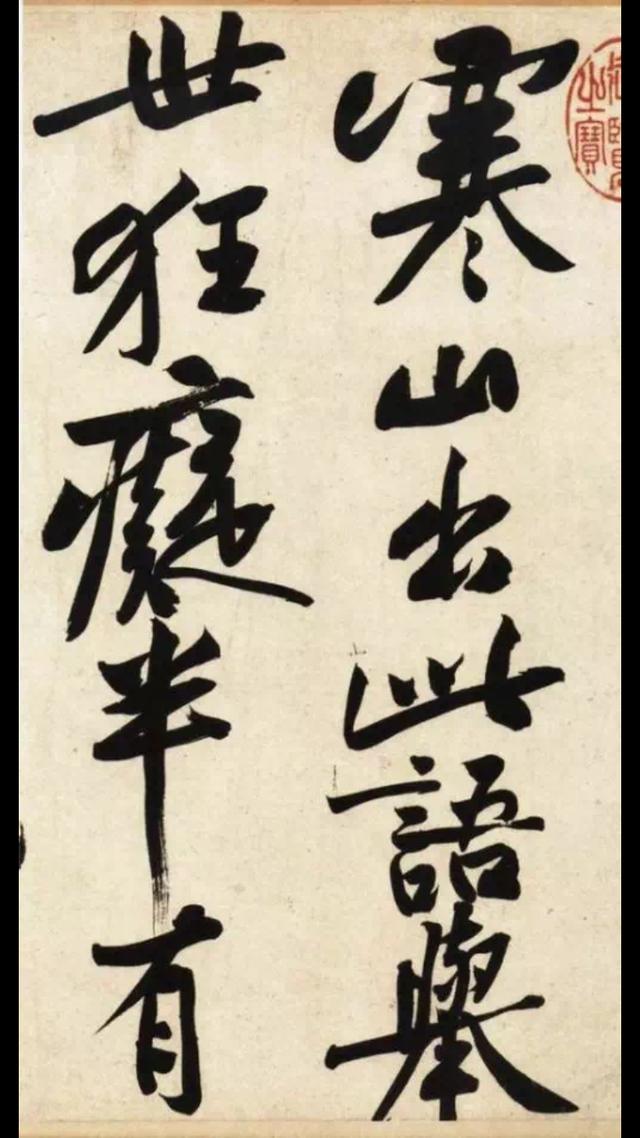 寒山出此語舉
世狂癡半有
之寶